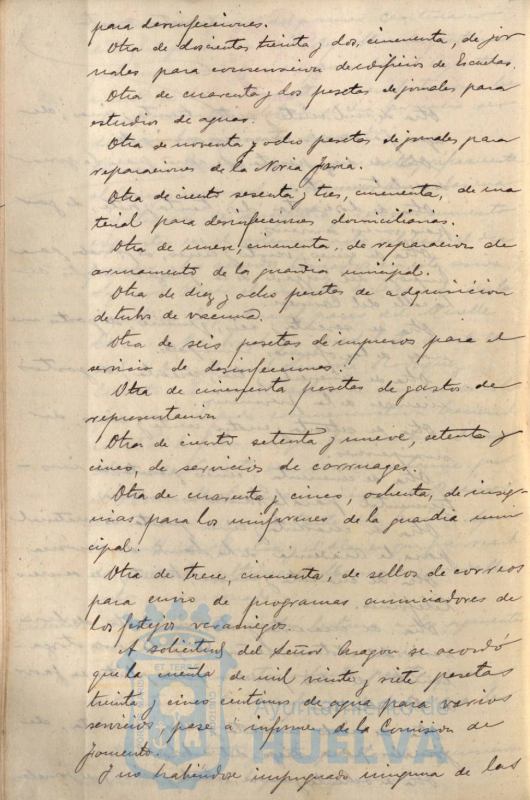 para desinfecciones.
Otra de doscientas treinta y dos, cincuenta, de jor
nales para conservacion de edificios de Escuelas.
Otra de cuarenta y dos pesetas de jornales para
estudios de aguas.
Otra de noventa y ocho pesetas de jornales para
reparaciones de la Noria
Otra de ciento sesenta y tres, cincuenta, de ma
terial para desinfecciones domiciliarias.
Otra de nueve, cincuenta, de reparacion de
armamento de la guardia municipal.
Otra de diez y ocho pesetas de adquisicion
de tubos de vacuna.
Otra de seis pesetas de impresos para el
servicio de desinfecciones.
Otra de cincuenta pesetas de gastos de
representacion
Otra de ciento setenta y nueve, setenta y
cinco, de servicios de carruages.
Otra de cuarenta y cinco, ochenta, de insig
nias para los uniformes de la guardia muni
cipal.
Otra de trece, cincuenta, de sellos de correos
para envio de programas anunciadores de
los festejos veraniegos.
A solicitud del Señor Aragon se acordó
que la cuenta de mil veinte y siete pesetas
treinta y cinco centimos de agua para varios
servicios, pase á informe de la Comision de
Fomento.
Y no habiéndose impugnado ninguna de las
Ayuntamiento de
HUELVA